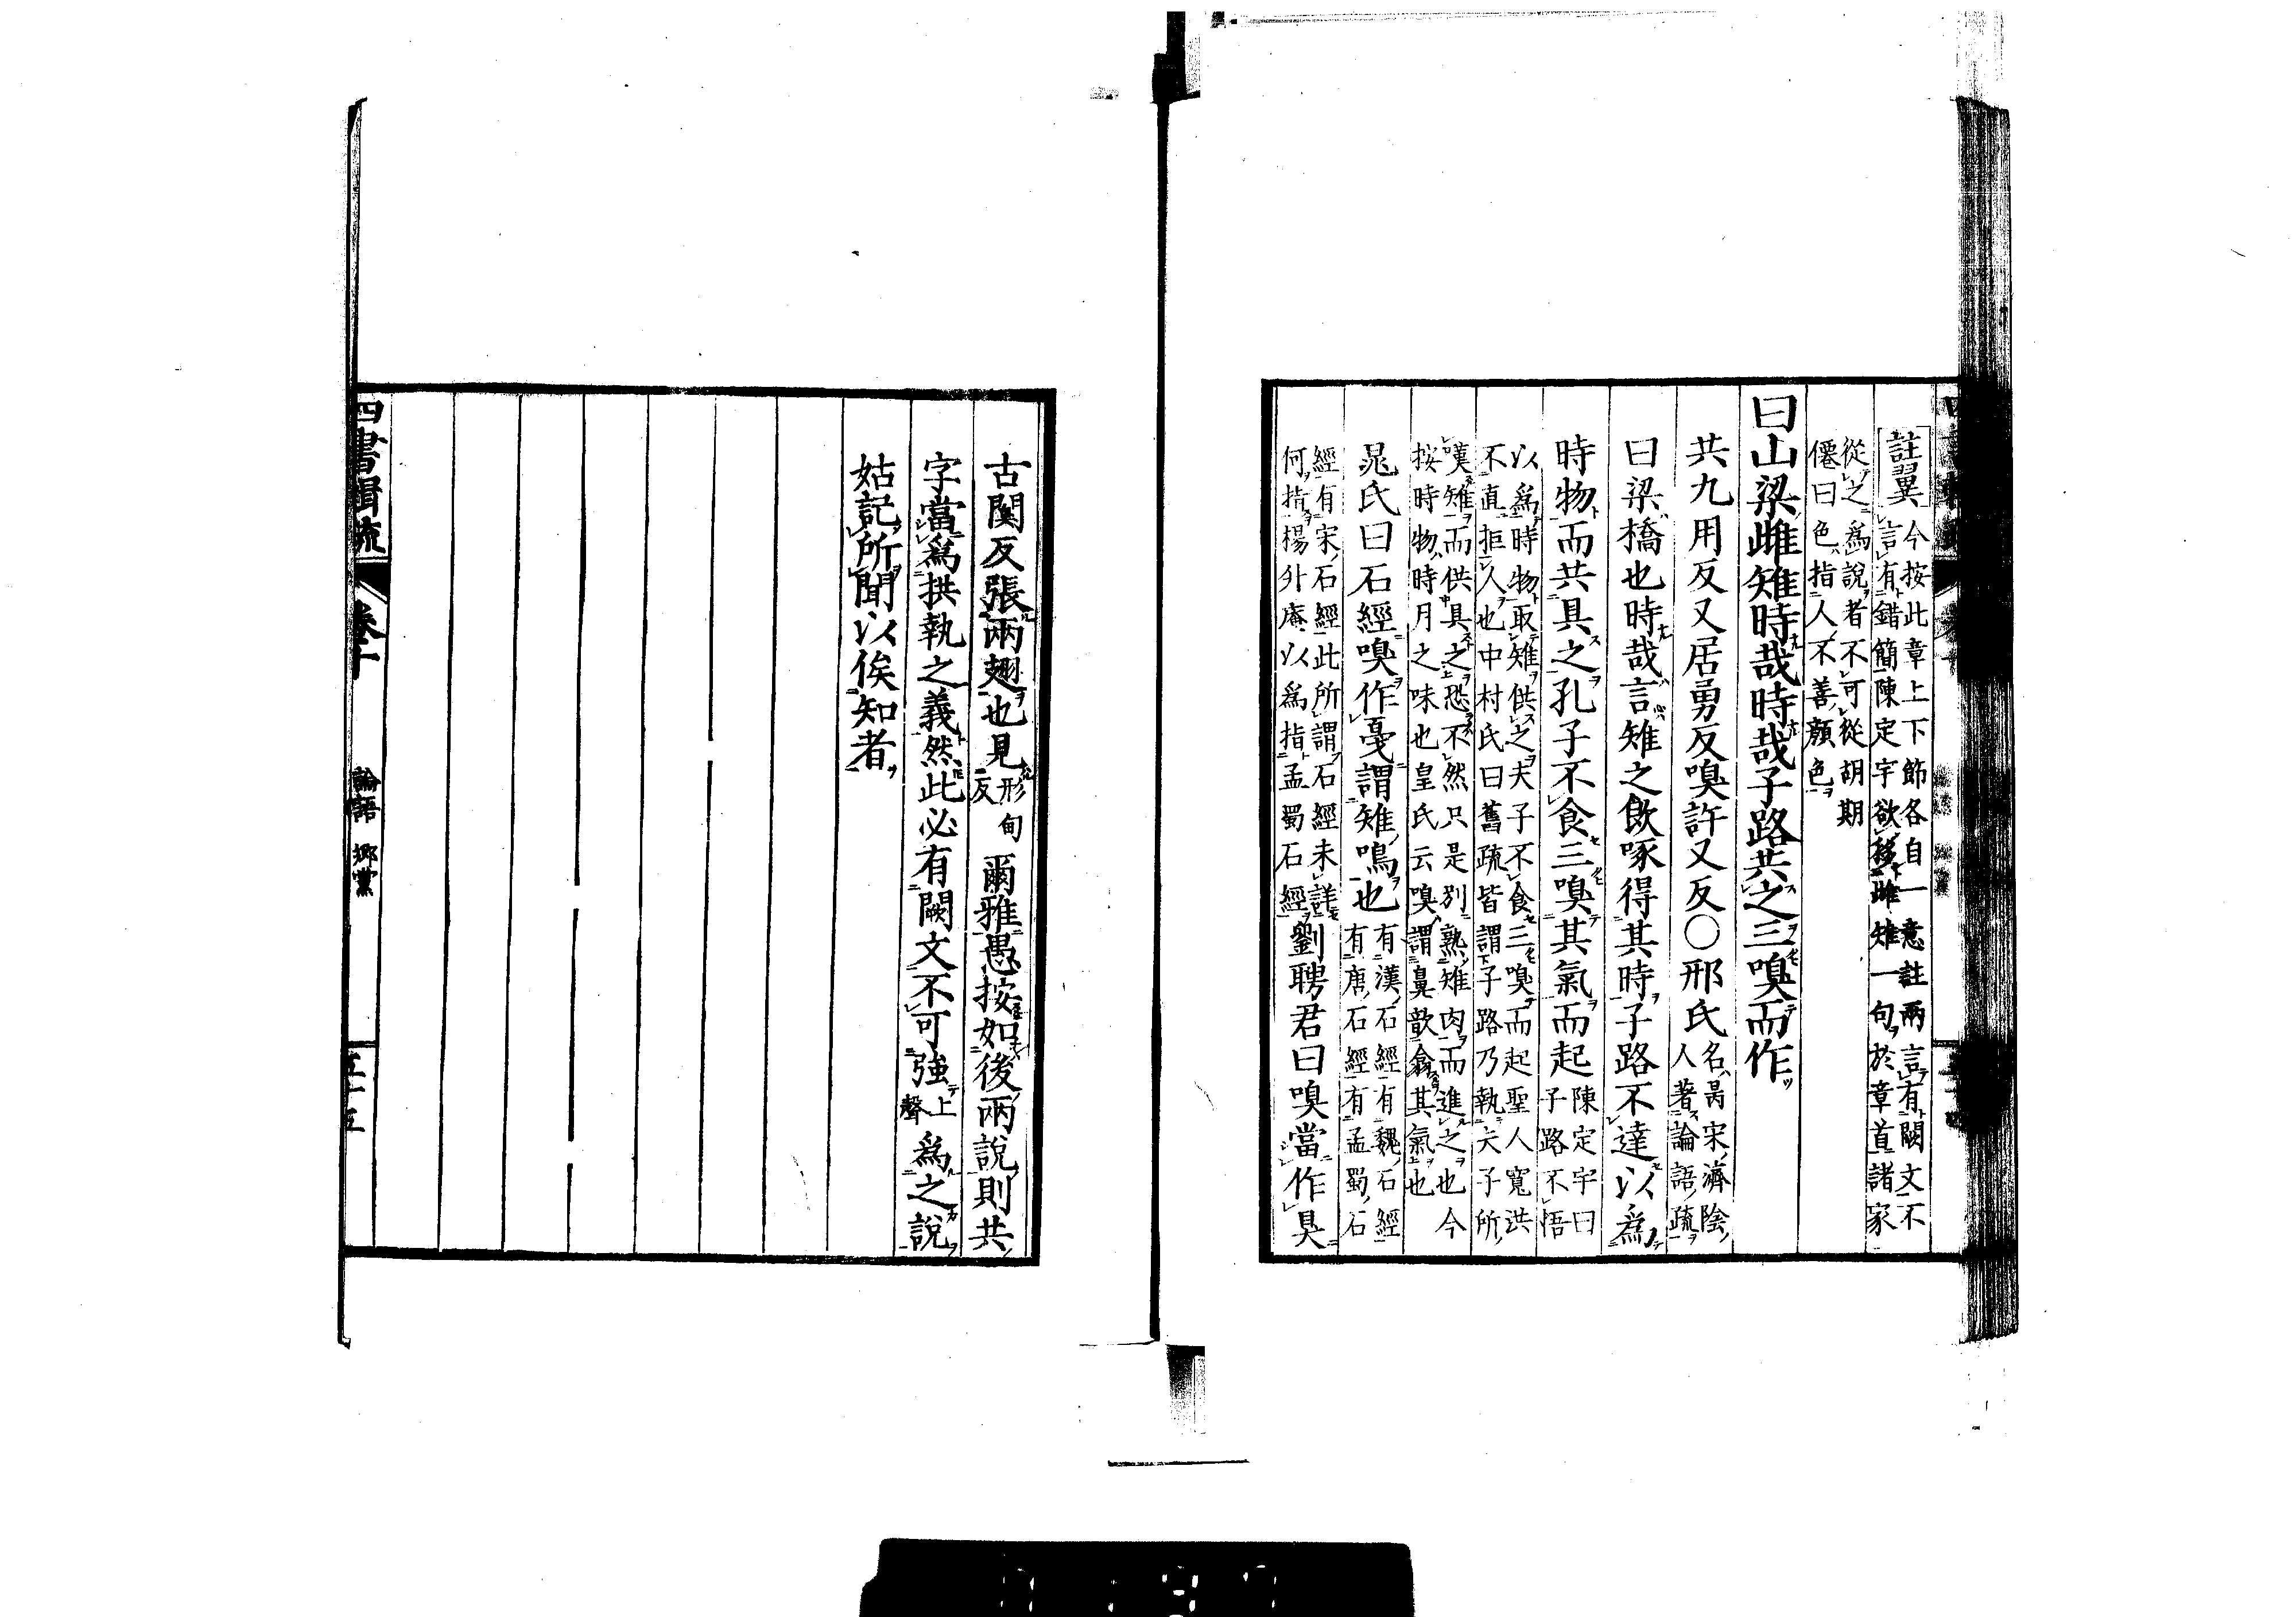 註翼
今按此章上下節各自一意註兩言有闕文不
言有錯簡陳定宇欲移雌雉一句於章首諸家
從之爲說者不可從胡期
僊曰色指人不善顔色
曰山梁雌雉時哉時哉子路共之三嗅而作
共九用反又居勇反嗅許又反〇邢氏
名昺宋濟陰
人著論語疏
曰梁橋也時哉言雉之飲啄得其時子路不達以爲
時物而共具之孔子不食三嗅其氣而起
陳定宇曰
子路不悟
以爲時物取雉供之夫子不食三嗅而起聖人寬洪
不直拒人也中村氏曰舊疏皆謂子路乃執夫子所
嘆雉而供具之恐不然只是別熟雉肉而進之也今
按時物時月之味也皇氏云嗅謂鼻歆翕其氣也
晁氏曰石經嗅作戞謂雉鳴也
有漢石經有魏石經
有唐石經有孟蜀石
經有宋石經此所謂石經未詳
何指楊升庵以爲指孟蜀石經
劉聘君曰嗅當作狊
古闃反張兩翅也見
形甸
反
爾雅愚按如後兩說則共
字當爲拱執之義然此必有闕文不可強
上
聲
爲之說
姑記所聞以俟知者
四書輯疏
卷十
論語 鄉黨
五十五